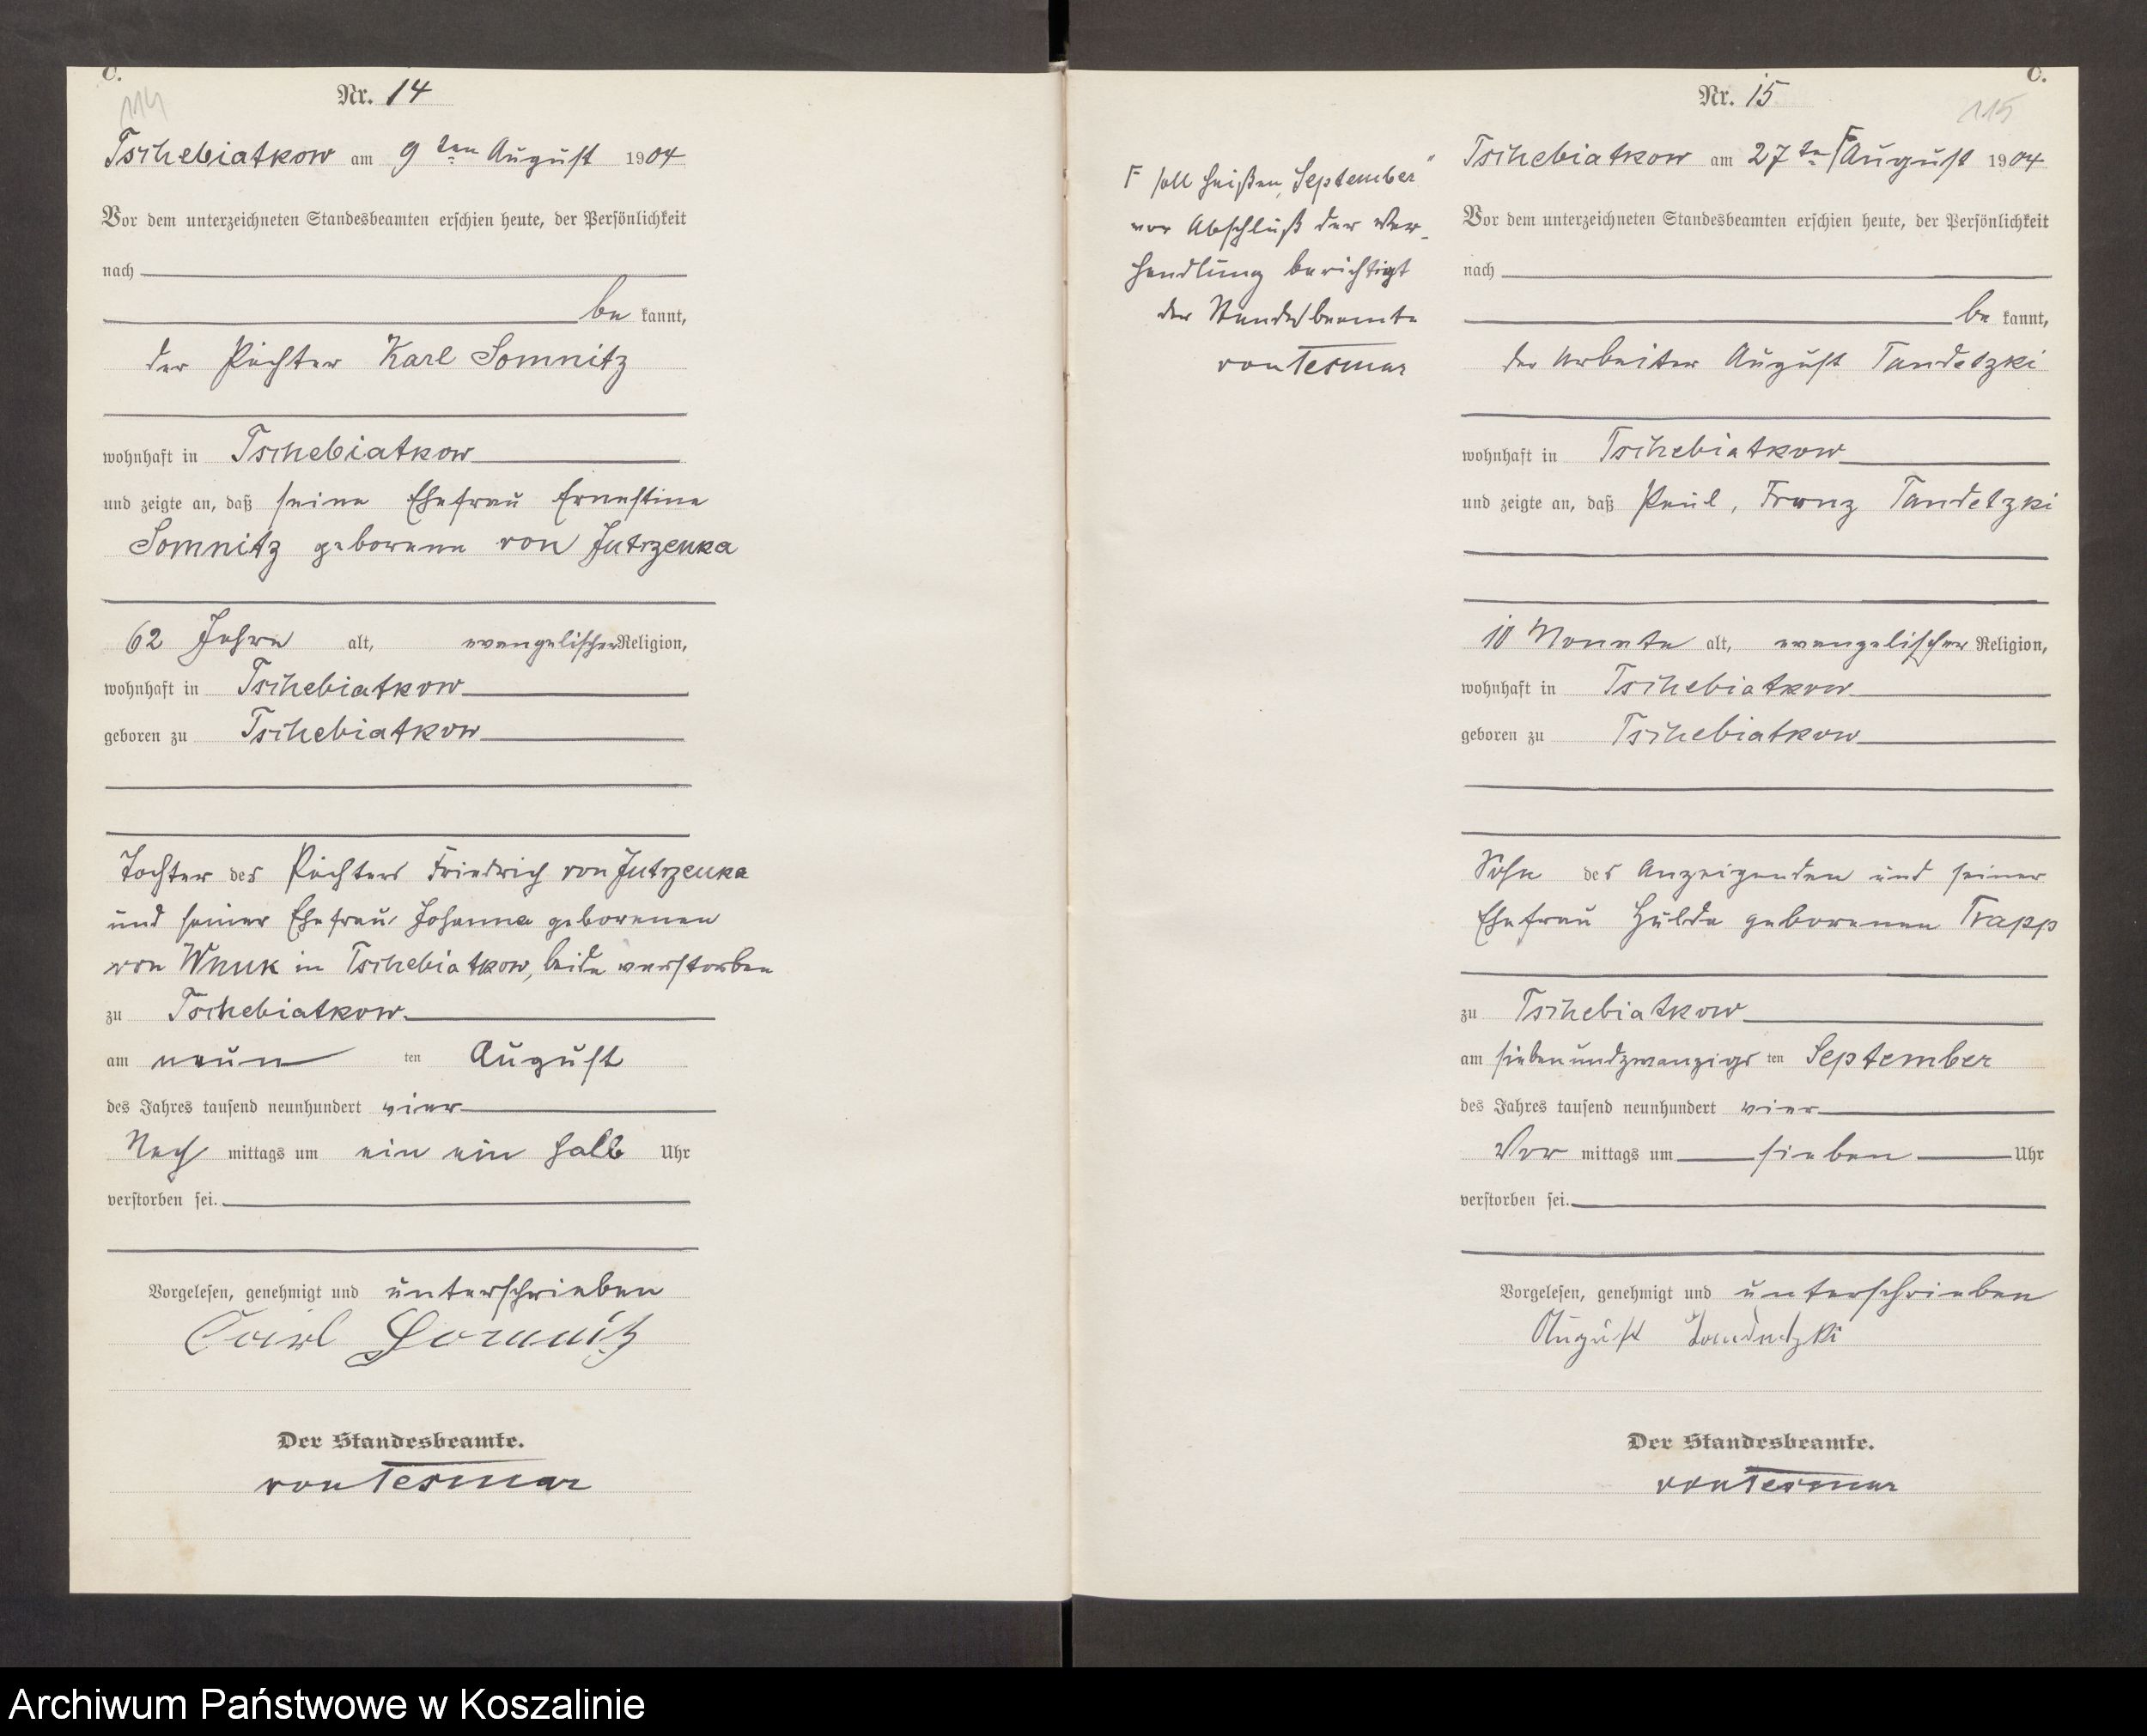 C.
114
Nr. 14
Tschebiatkow am 9 ten August 1904
Vor dem unterzeichneten Standesbeamten erschien heute, der Persönlichkeit
nach
be kannt,
der Pächter Karl Somnitz
wohnhaft in Tschebiatkow
und zeigte an, daß seine Ehefrau Ernestine
Somnitz geborene von Jutrzenka
62 Jahre alt, evangelischer Religion,
wohnhaft in Tschebiatkow
geboren zu Tschebiatkow
Tochter des Pächters Friedrich von Jutrzenka
und seiner Ehefrau Johanna geborenen
von Wnuk in Tschebiatkow, beide verstorben
zu Tschebiatkow
am neun ten August
des Jahres tausend neunhundert vier
Nach mittags um ein ein halb Uhr
verstorben sei.
Vorgelesen, genehmigt und unterschrieben
Carl Somnitz
Der Standesbeamte.
von Tesmar
C.
Nr. 15
115
Tschebiatkow am 27 ten F August 1904
F soll heißen „September"
vor Abschluß der Ver-
handlung berichtigt
der Standesbeamte
von Tesmar
Vor dem unterzeichneten Standesbeamten erschien heute, der Persönlichkeit
nach
be kannt,
der Arbeiter August Tandetzki
wohnhaft in Tschebiatkow
und zeigte an, daß Paul, Franz Tandetzki
10 Monate alt, evangelischer Religion,
wohnhaft in Tschebiatkow
geboren zu Tschebiatkow
Sohn des Anzeigenden und seiner
Ehefrau Hulda geborenen Trapp
zu Tschebiatkow
am siebenundzwanzigs ten September
des Jahres tausend neunhundert vier
Vor mittags um sieben Uhr
verstorben sei.
Vorgelesen, genehmigt und unterschrieben
August Tandetzki
Der Standesbeamte.
von Tesmar
Archiwum Państwowe w Koszalinie